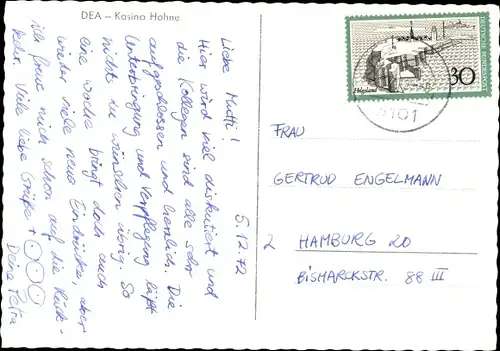 DEA – Kasino Hohne
5.12.72
Liebe Mutti!
Hier wird viel diskutiert und
die Kollegen sind alle sehr
aufgeschlossen und herzlich. Die
Unterbringung und Verpflegung läßt
nichts zu wünschen übrig. So
eine Woche bringt doch auch
wieder viele neue Eindrücke, aber
ich freue mich schon auf die Rück-
kehr. Viele liebe Grüße +
Deine Petra
DEUTSCHE BUNDESPOST
Helgoland
30
3101
FRAU
GERTRUD ENGELMANN
2 HAMBURG 20
BISMARCKSTR. 88 III